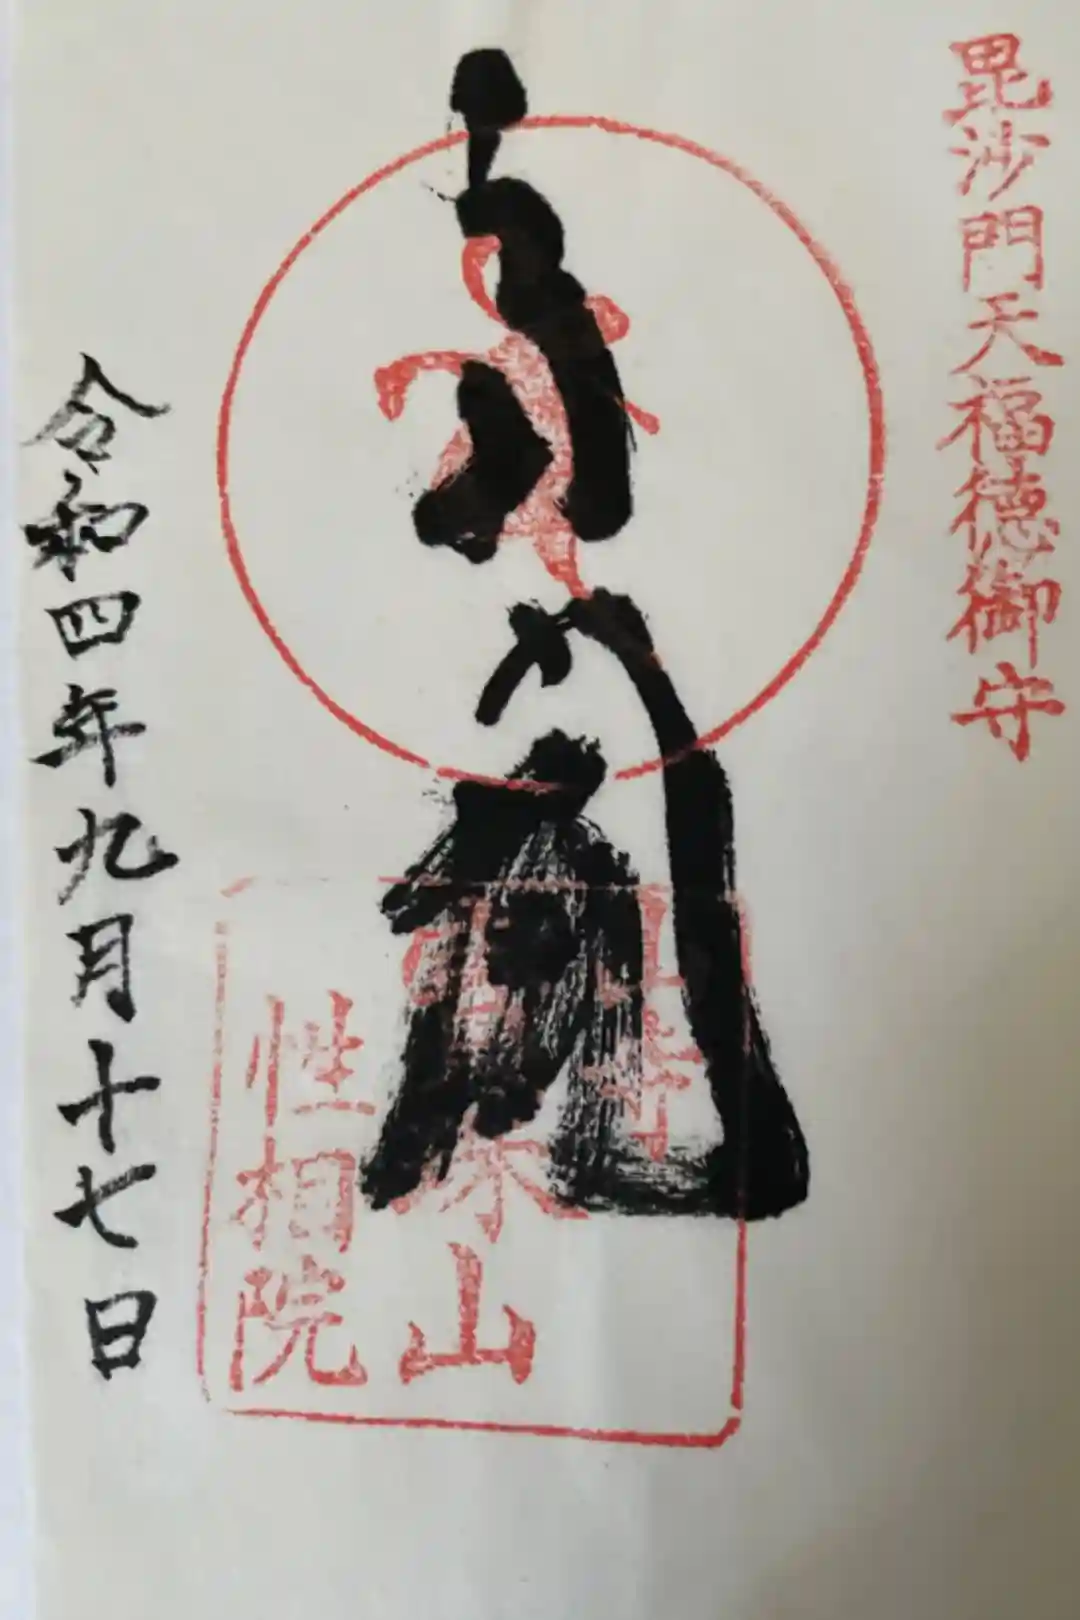 毘沙門天福徳御守
山寺
山
性相院
令和四年九月十七日